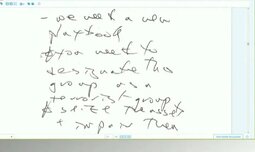 - we need a new
playbook
you need to
designate this
group as a
terrorist group
& seize the asset
+ impair them